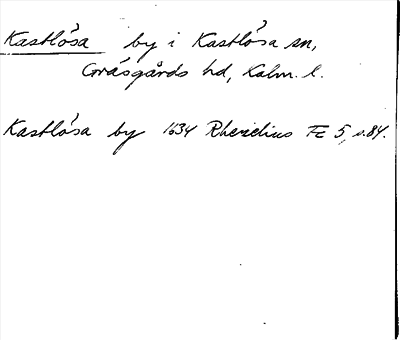 Kastlösa by i Kastlösa sn,
Gräsgårds hd, Kalm. l.
Kastlösa by 1634 Rhezelius Fc 5, s. 84.